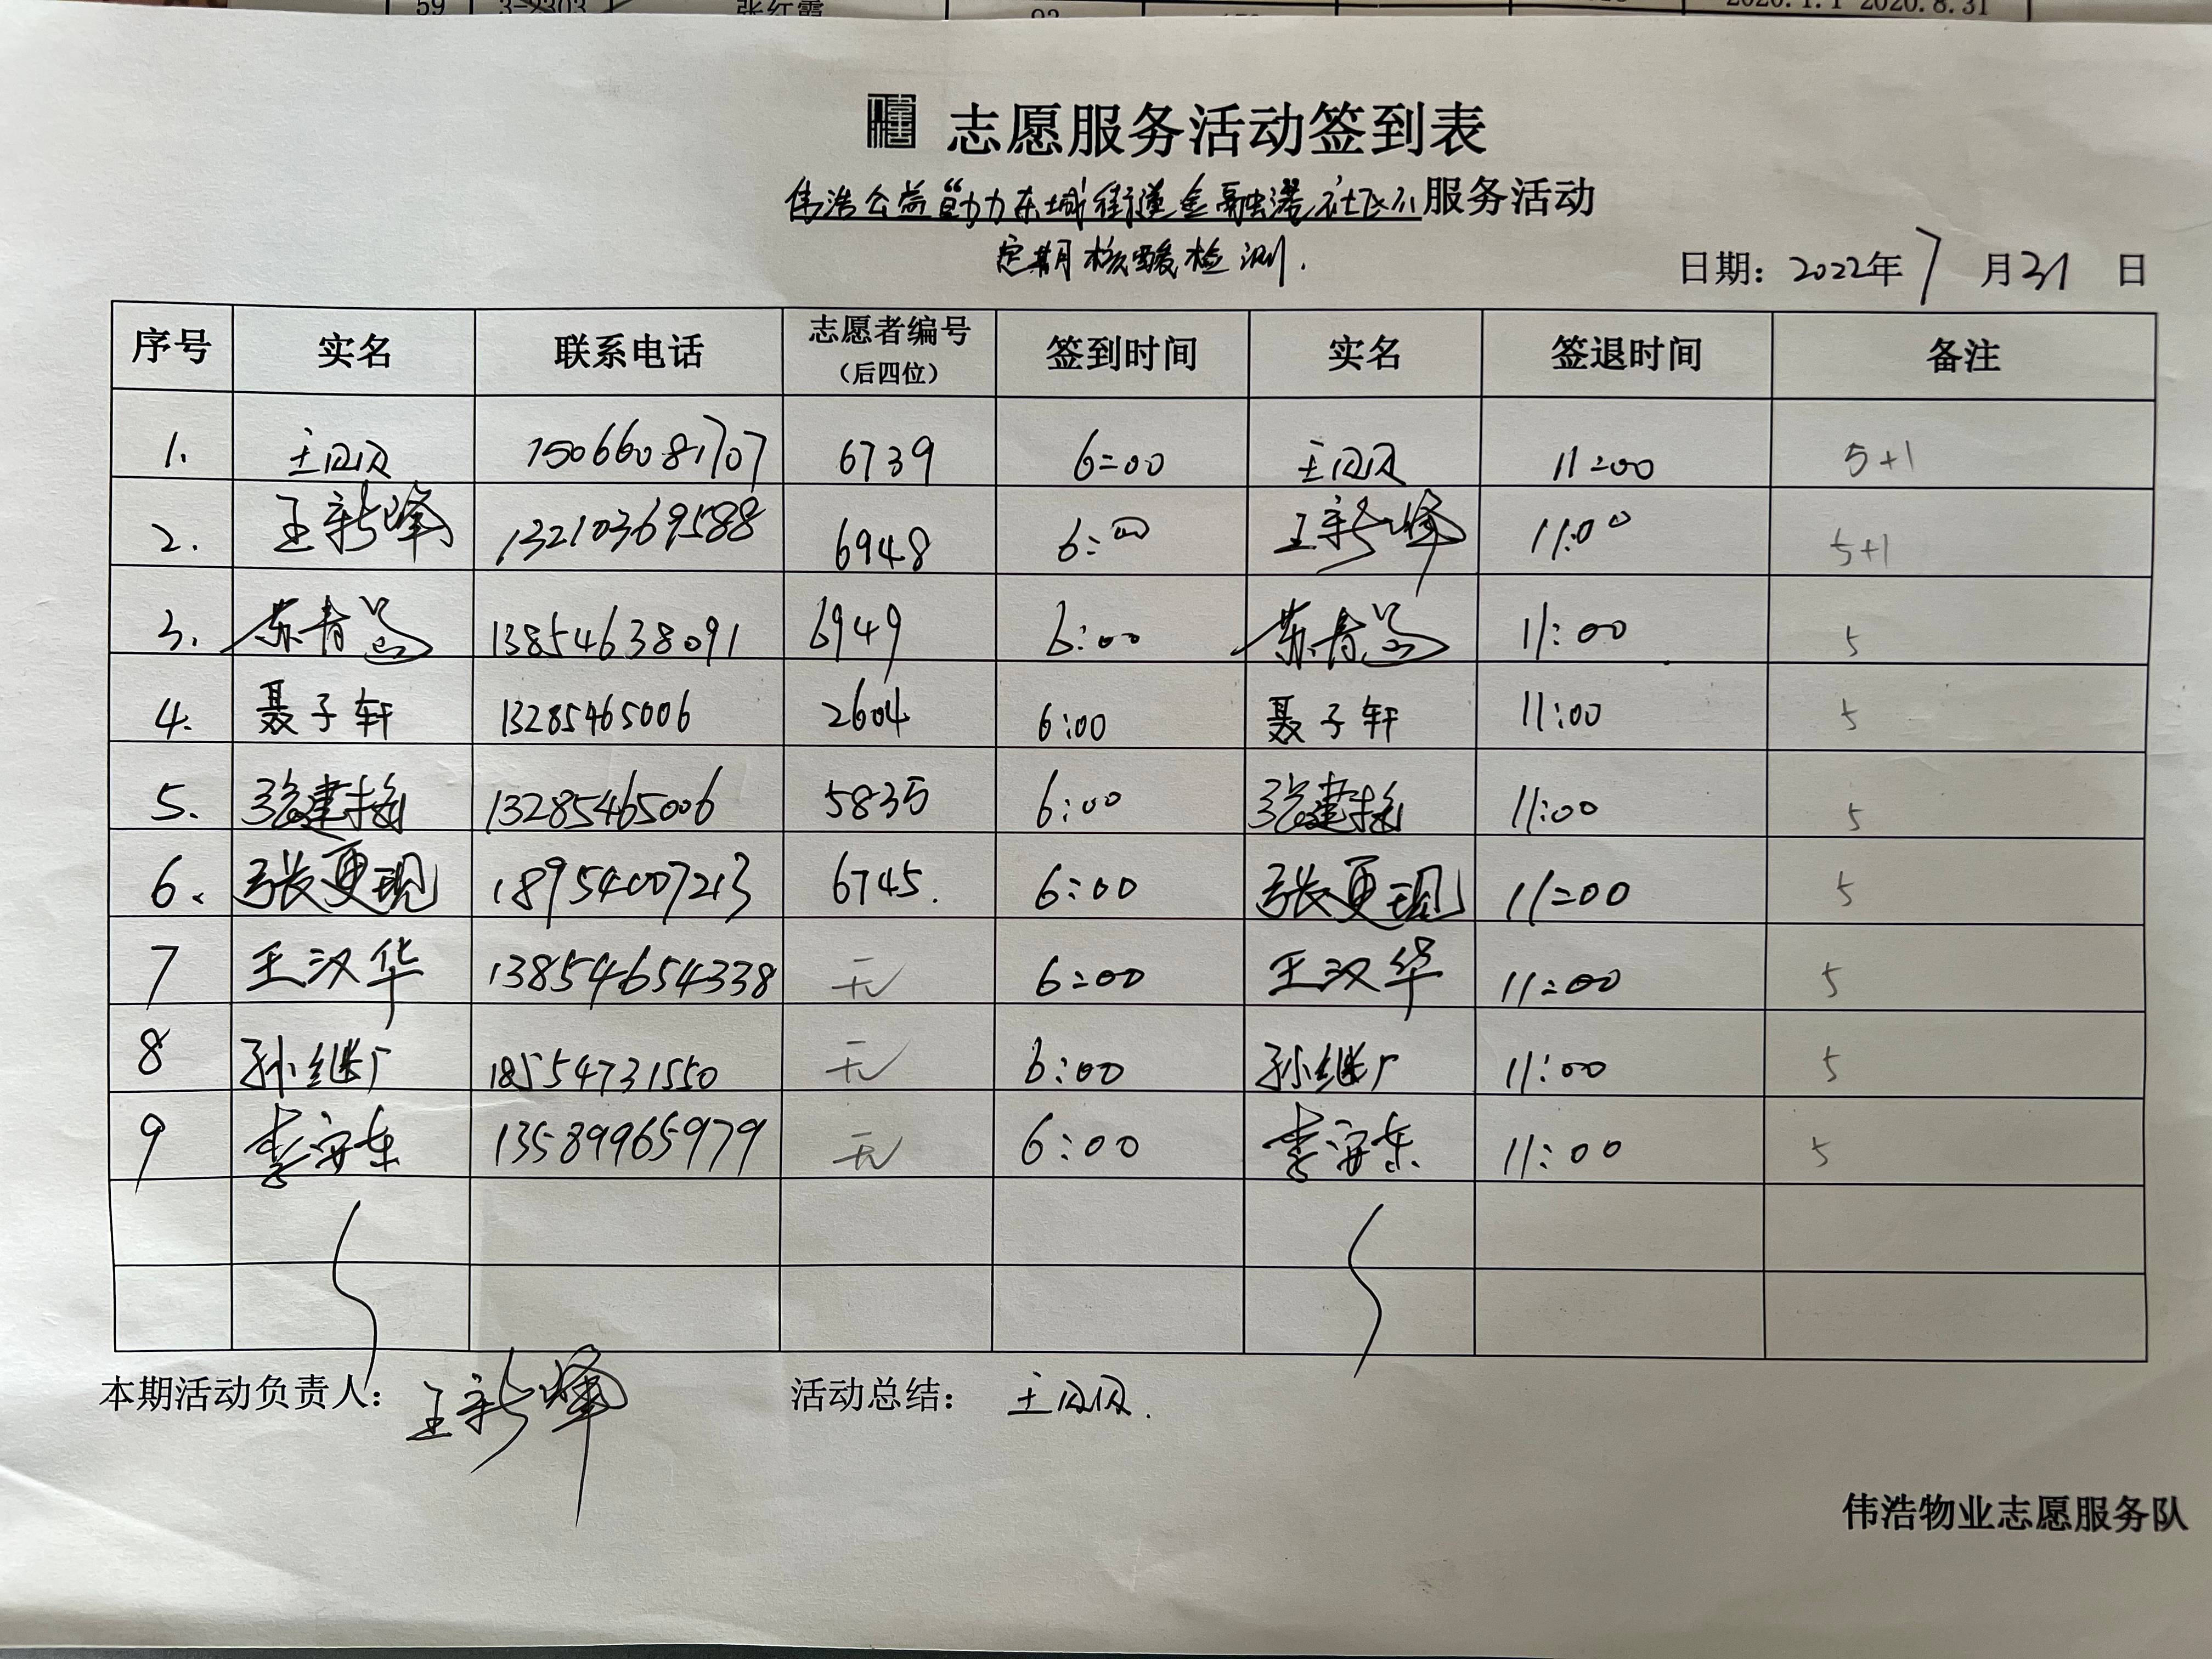 59 3-2303 张红霞 2020.1.1 2020.8.31
志愿服务活动签到表
伟浩公益“助力东城街道金融港社区”服务活动
定期核酸检测.
日期: 2022年 7 月 31 日
序号 实名 联系电话 志愿者编号 签到时间 实名 签退时间 备注
（后四位）
1. 王 15066081707 6739 6:00 王 11:00 5+1
2. 王新峰 13210369588 6948 6:00 王新峰 11:00 5+1
3. 苏青 13854638091 6949 6:00 苏青 11:00 5
4. 聂子轩 13285465006 2604 6:00 聂子轩 11:00 5
5. 张建 13285465006 5835 6:00 张建 11:00 5
6. 张更现 18954007213 6745. 6:00 张更现 11:00 5
7 王汉华 13854654338 无 6:00 王汉华 11:00 5
8 孙继广 18554731550 无 6:00 孙继广 11:00 5
9 李安东 13589965979 无 6:00 李安东 11:00 5
本期活动负责人: 王新峰 活动总结: 王
伟浩物业志愿服务队